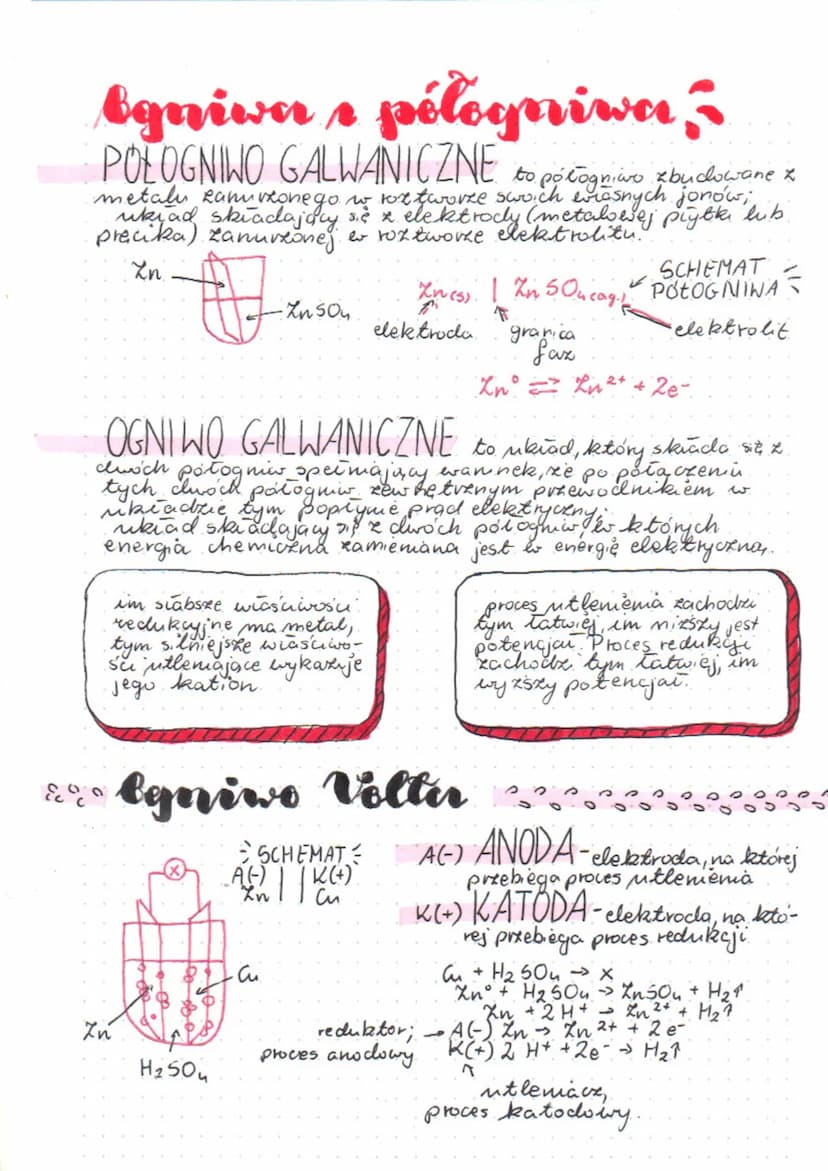 Ogniwa i półogniwa
PÓŁOGNIWO GALWANICZNE to półogniwo zbudowane z
metalu zanurzonego w roztworze swoich własnych jonów;
układ składający się z elektrody (metalowej płytki lub
pręcika) zanurzonej w roztworze elektrolitu.
Zn
ZnSO₄
Zn(s) | ZnSO₄(aq.)
SCHEMAT
PÓŁOGNIWA
elektroda
granica
faz
elektrolit
Zn⁰ ⇄ Zn²⁺ + 2e⁻
OGNIWO GALWANICZNE to układ, który składa się z
dwóch półogniw spełniający warunek, że po połączeniu
tych dwóch półogniw zewnętrznym przewodnikiem w
układzie tym popłynie prąd elektryczny;
układ składający się z dwóch półogniw, w których
energia chemiczna zamieniana jest w energię elektryczną.
im słabsze właściwości
redukcyjne ma metal,
tym silniejsze właściwo-
ści utleniające wykazuje
jego kation
proces utlenienia zachodzi
tym łatwiej, im niższy jest
potencjał. Proces redukcji
zachodzi tym łatwiej, im
wyższy potencjał.
Ogniwo Volta
SCHEMAT
A(-) | | K(+)
Zn | | Cu
Cu
Zn
H₂SO₄
A(-) ANODA - elektroda, na której
przebiega proces utlenienia
K(+) KATODA - elektroda, na któ-
rej przebiega proces redukcji
Cu + H₂SO₄ → x
Zn⁰ + H₂SO₄ → ZnSO₄ + H₂↑
Zn + 2H⁺ → Zn²⁺ + H₂↑
reduktor; → A(-) Zn → Zn²⁺ + 2e⁻
proces anodowy K(+) 2 H⁺ + 2e⁻ → H₂↑
utleniacz,
proces katodowy.